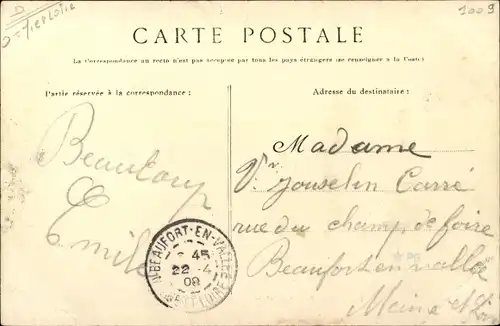 1009
CARTE POSTALE
La Correspondance au recto n'est pas acceptée par tous les pays étrangers (se renseigner à la Poste)
Partie réservée à la correspondance :
Adresse du destinataire :
Madame
Vve Jouselin Carré
rue du champ de foire
Beaufort en vallée
Maine et Loire
Emile
BEAUFORT-EN-VALLÉE
45
22 -4
09